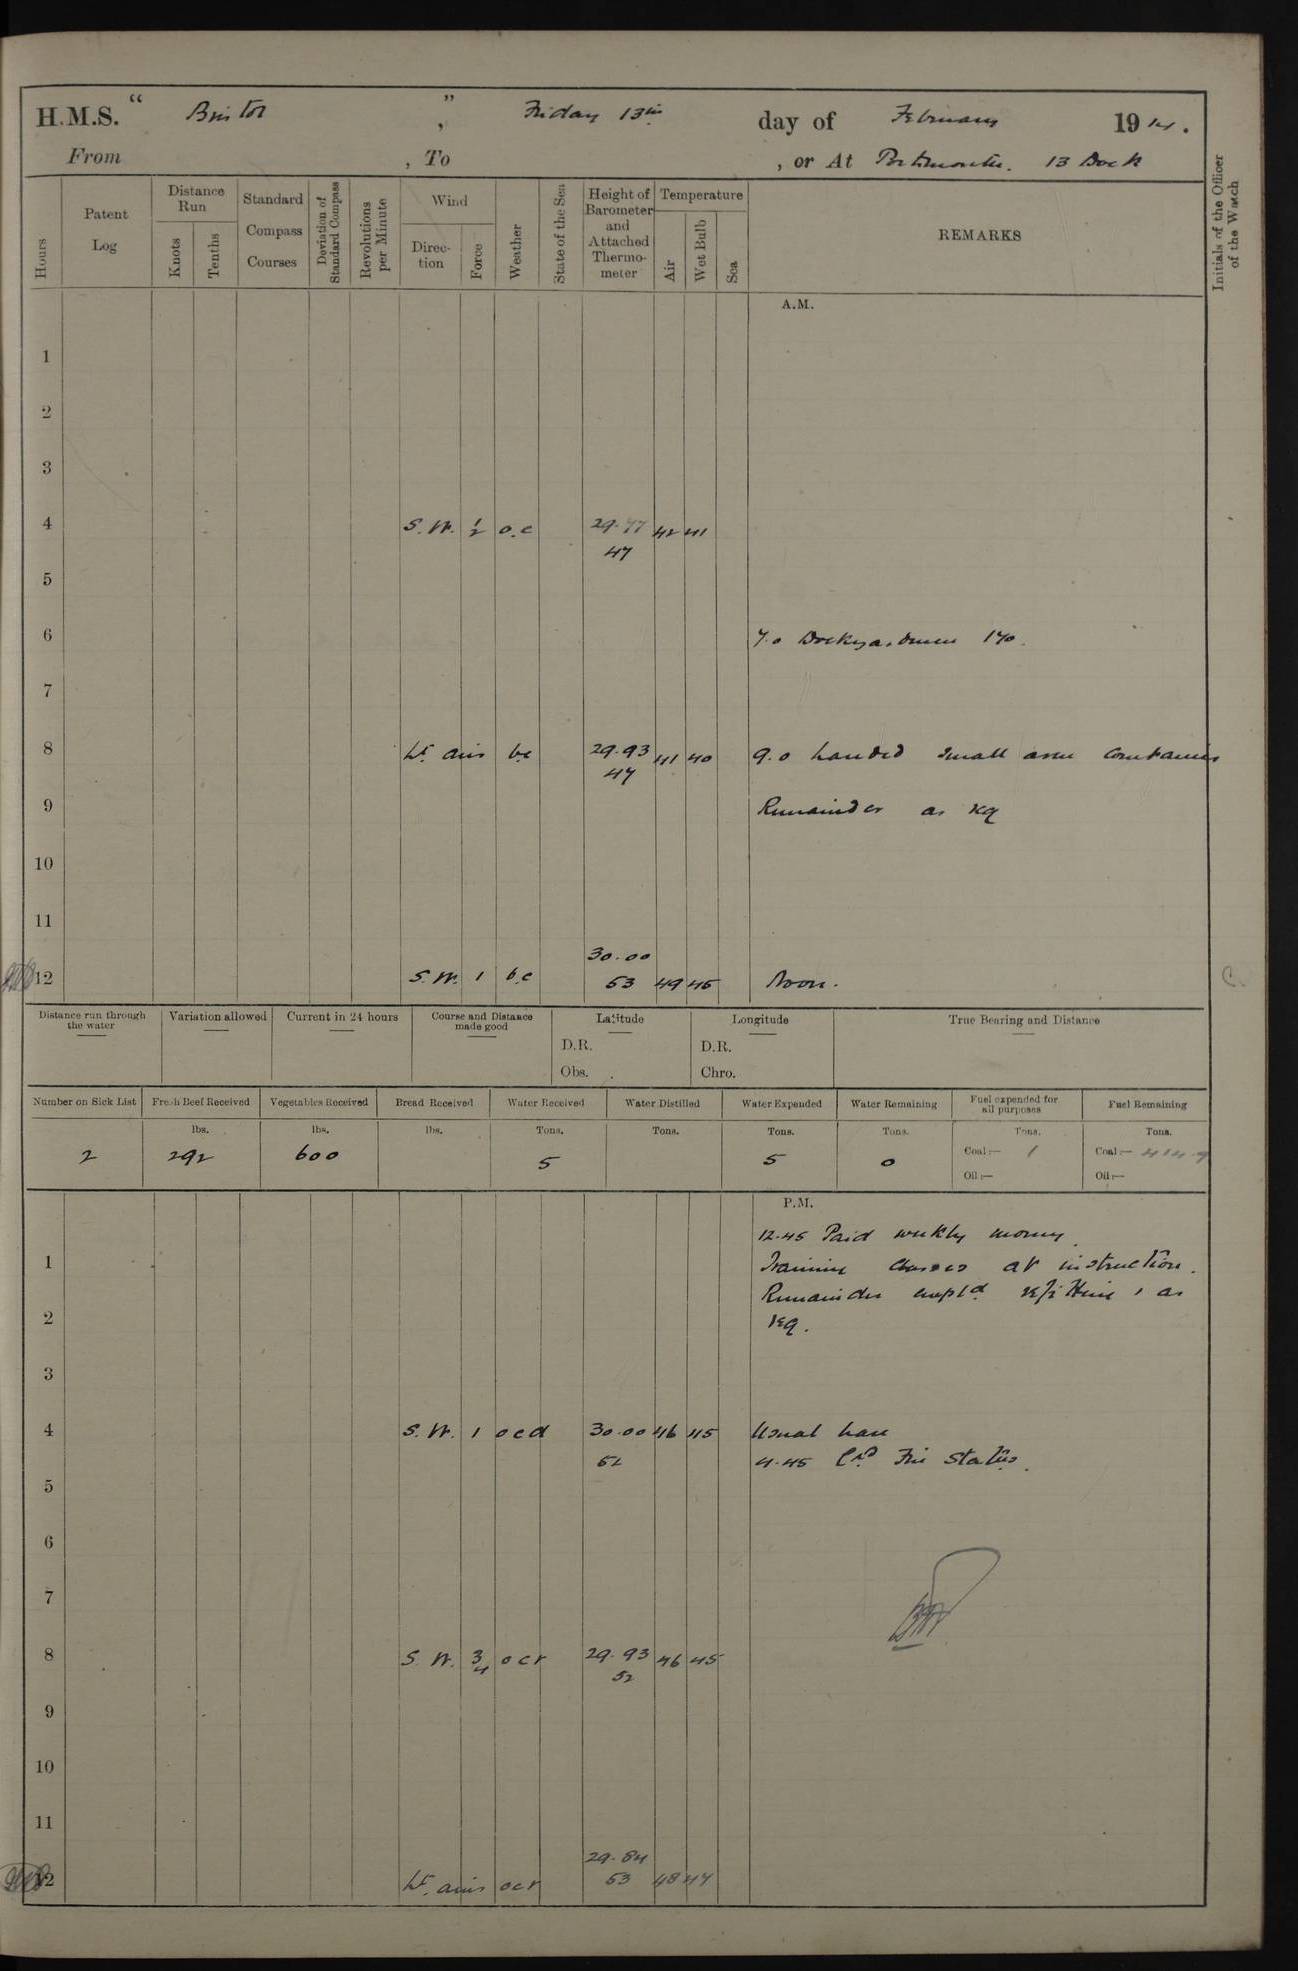 H.M.S. “ Bristol ” , Friday 13th day of February 1914.
From , To , or At Portsmouth. 13 Dock
Hours
Patent Log
Distance Run
Knots
Tenths
Standard Compass Courses
Deviation of Standard Compass
Revolutions per Minute
Wind
Direc-tion
Force
Weather
State of the Sea
Height of Barometer and Attached Thermo-meter
Temperature
Air
Wet Bulb
Sea
REMARKS
Initials of the Officer of the Watch
A.M.
1
2
3
4 S.W. 1/2 o.c 29.77 42 41
47
5
6 7.0 Dockyardmen 170.
7
8 Lt airs bc 29.93 41 40 9.0 Landed small arm companies
47
9 Remainder as req
10
11
30.00
12 S.W. 1 b.c 53 49 45 Noon.
Distance run through the water
Variation allowed
Current in 24 hours
Course and Distance made good
Latitude
D.R.
Obs.
Longitude
D.R.
Chro.
True Bearing and Distance
Number on Sick List Fresh Beef Received Vegetables Received Bread Received Water Received Water Distilled Water Expended Water Remaining Fuel expended for all purposes Fuel Remaining
lbs. lbs. lbs. Tons. Tons. Tons. Tons. Tons. Tons.
2 292 600 5 5 0 Coal:— 1 Coal:— 414.9
Oil:— Oil:—
P.M.
12.45 Paid weekly money.
1 Training classes at instruction.
Remainder empld refitting & as
2 req.
3
4 S.W. 1 o c d 30.00 46 45 Usual leave
52 4.45 Cld Fire Stations.
5
6
7
8 S.W. 3/4 o c r 29.93 46 45
52
9
10
11
29.84
12 Lt. airs o c r 53 48 47